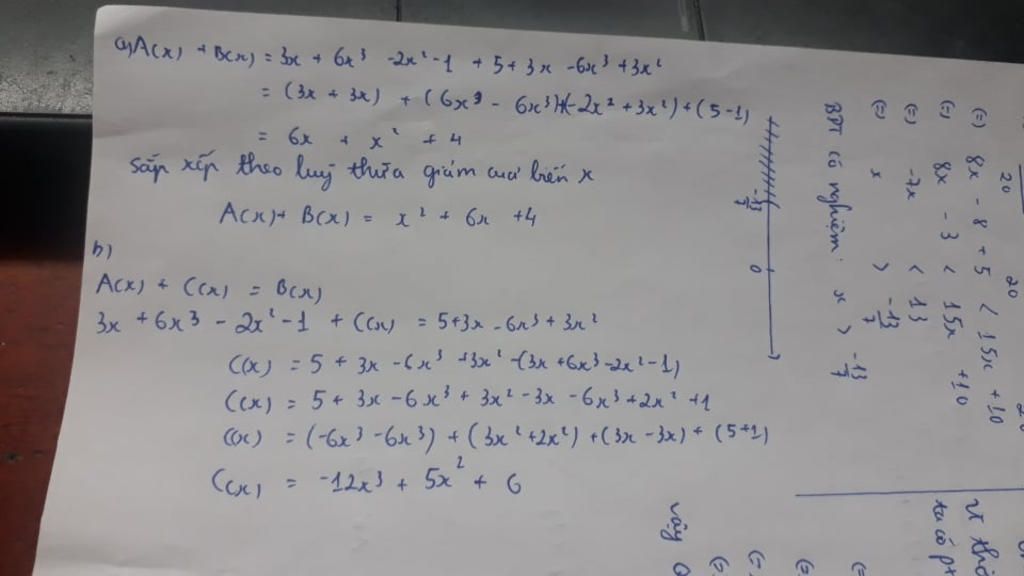 a) A(x) + B(x) = 3x + 6x³ - 2x² - 1 + 5 + 3x - 6x³ + 3x²
= (3x + 3x) + (6x³ - 6x³) + (-2x² + 3x²) + (5 - 1)
= 6x + x² + 4
Sắp xếp theo luỹ thừa giảm của biến x
A(x) + B(x) = x² + 6x + 4
b)
A(x) + C(x) = B(x)
3x + 6x³ - 2x² - 1 + C(x) = 5 + 3x - 6x³ + 3x²
C(x) = 5 + 3x - 6x³ + 3x² - (3x + 6x³ - 2x² - 1)
C(x) = 5 + 3x - 6x³ + 3x² - 3x - 6x³ + 2x² + 1
C(x) = (-6x³ - 6x³) + (3x² + 2x²) + (3x - 3x) + (5 + 1)
C(x) = -12x³ + 5x² + 6
20 20
(=) 8x - 8 + 5 < 15x + 10
(=) 8x - 3 < 15x + 10
(=) -7x < 13
(=) x > -13/7
BPT có nghiệm: x > -13/7
-13/7 0
ta có pt
(=
(=)
(=)
vậy